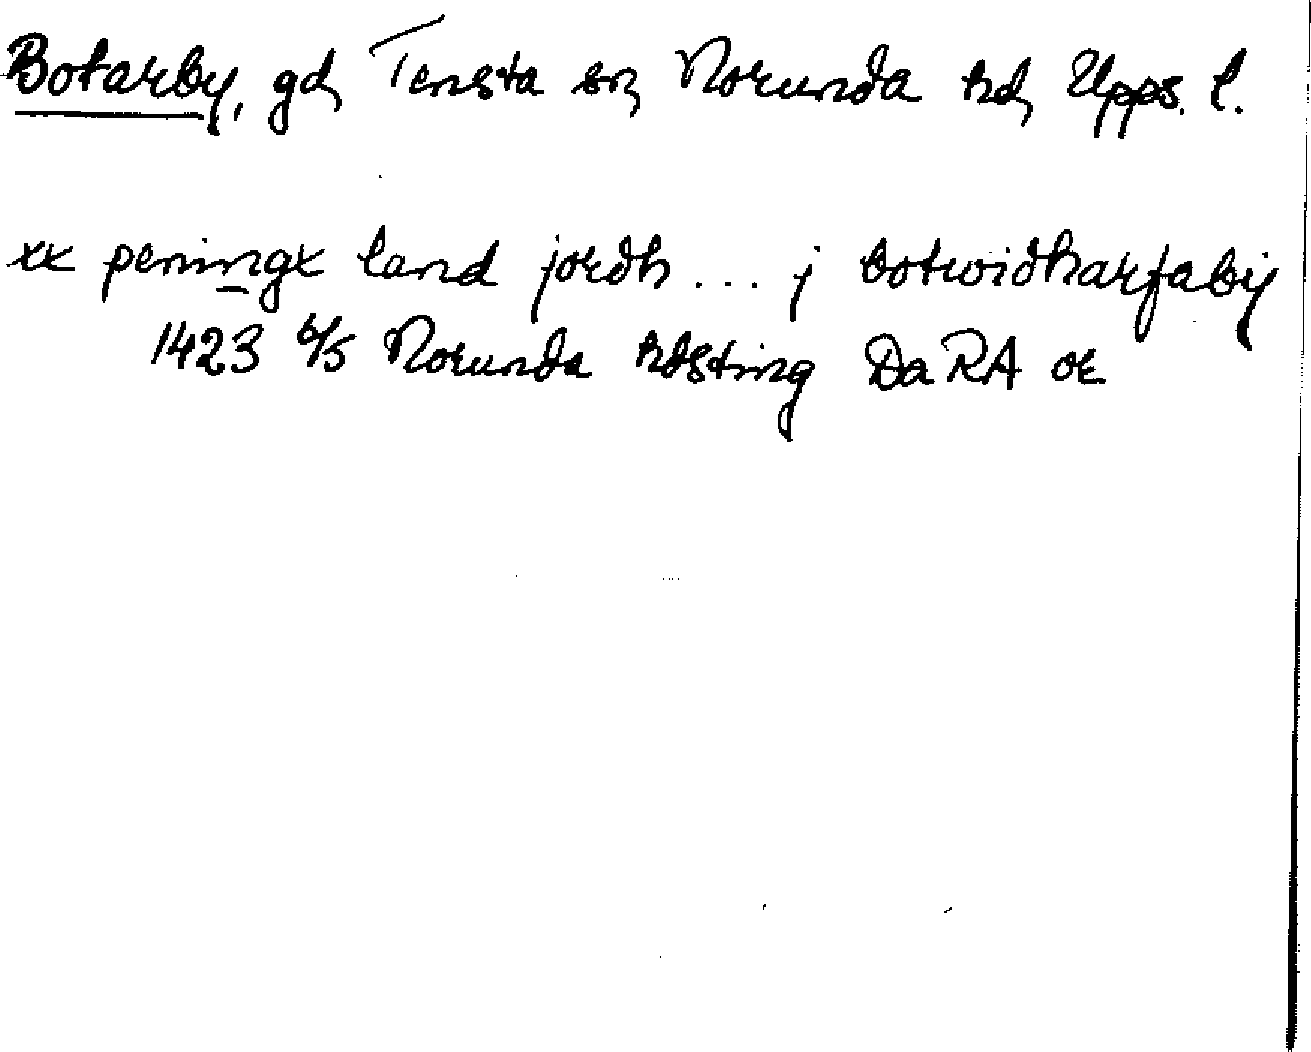 Botarby, gd, Tensta sn, Norunda hd, Upps. l.
xx peningx land jordh ... j botwidharfaby
1423 6/5 Norunda hdsting DaRA or